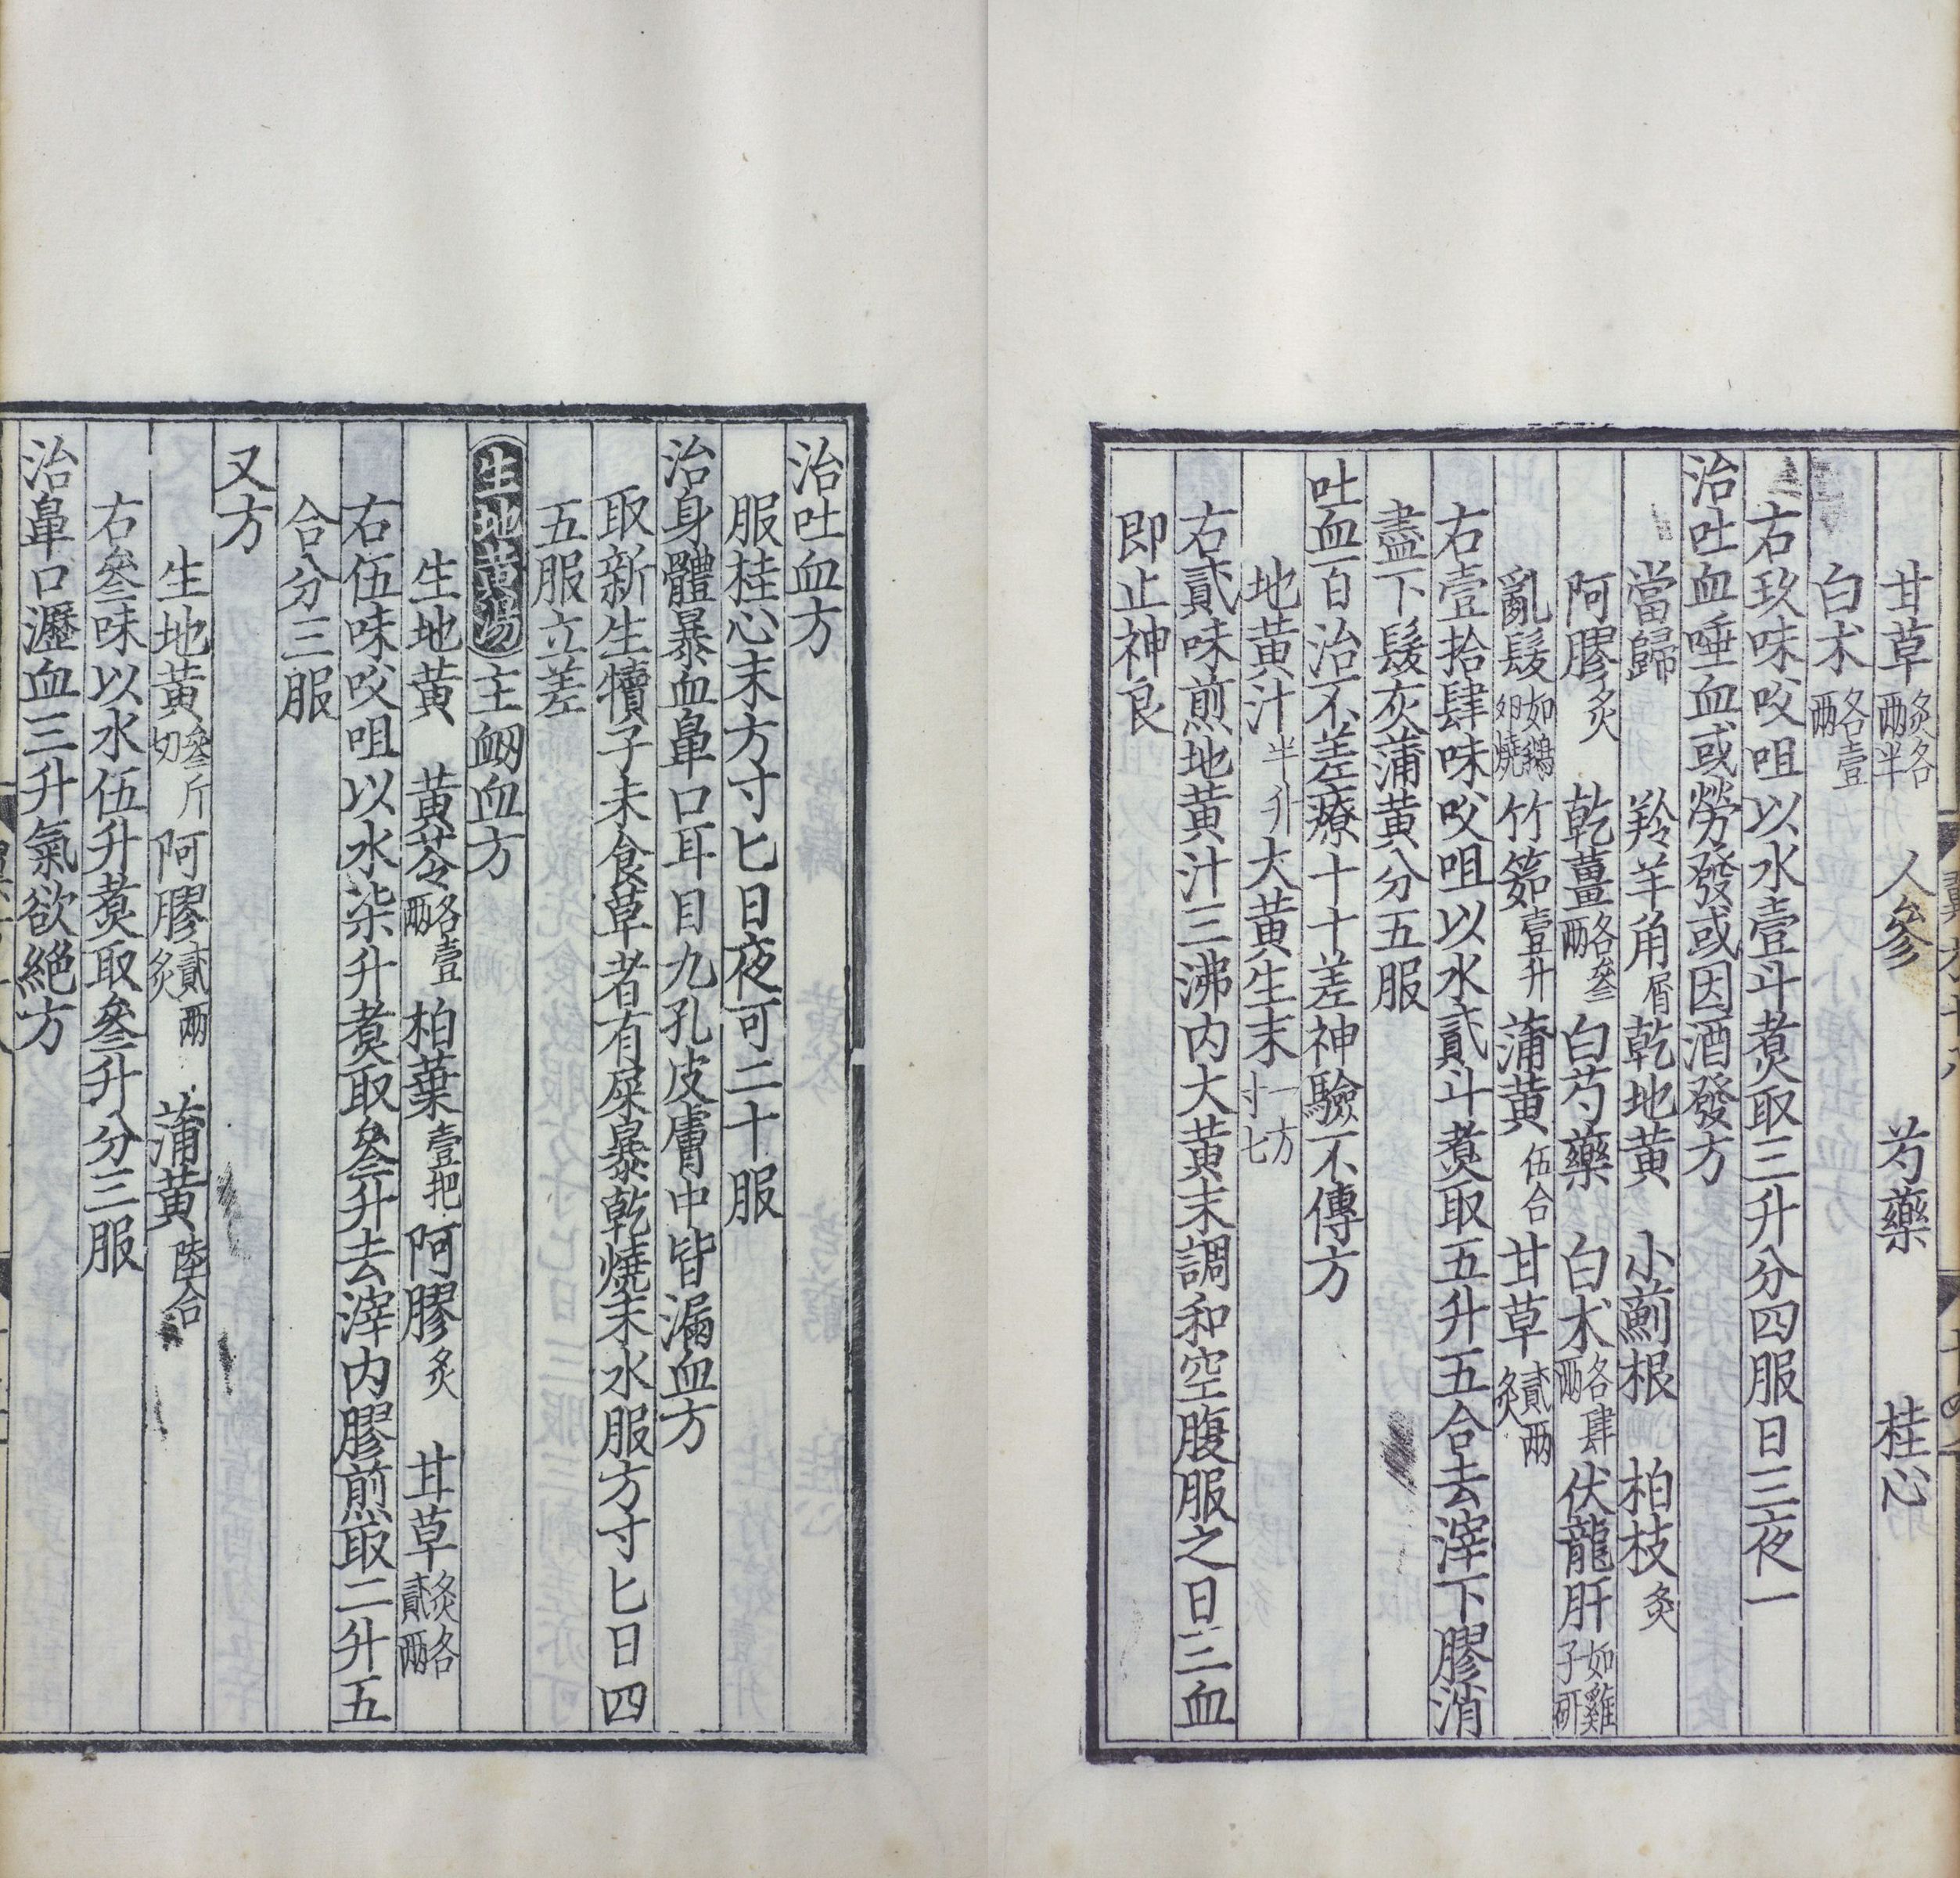 甘草炙各兩半 人參 芍藥 桂心
白朮各壹兩
右玖味㕮咀以水壹斗煮取三升分四服日三夜一
治吐血唾血或勞發或因酒發方
當歸 羚羊角屑 乾地黃 小薊根 柏枝炙
阿膠炙 乾薑各參兩 白芍藥 白朮各肆兩 伏龍肝如雞子研
亂髮如鷄卵燒 竹筎壹升 蒲黃伍合 甘草貳兩炙
右壹拾肆味㕮咀以水貳斗煮取五升五合去滓下膠消
盡下髮灰蒲黃分五服
吐血百治不差療十十差神驗不傳方
地黃汁半升 大黃生末一方寸匕
右貳味煎地黃汁三沸內大黃末調和空腹服之日三血
即止神良
治吐血方
服桂心末方寸匕日夜可二十服
治身體暴血鼻口耳目九孔皮膚中皆漏血方
取新生犢子未食草者有屎暴乾燒末水服方寸匕日四
五服立差
生地黃湯主衂血方
生地黃 黃芩各壹兩 柏葉壹把 阿膠炙 甘草炙各貳兩
右伍味㕮咀以水柒升煮取叄升去滓內膠煎取二升五
合分三服
又方
生地黃叄斤切 阿膠貳兩炙 蒲黃陸合
右叄味以水伍升煮取叄升分三服
治鼻口瀝血三升氣欲絕方